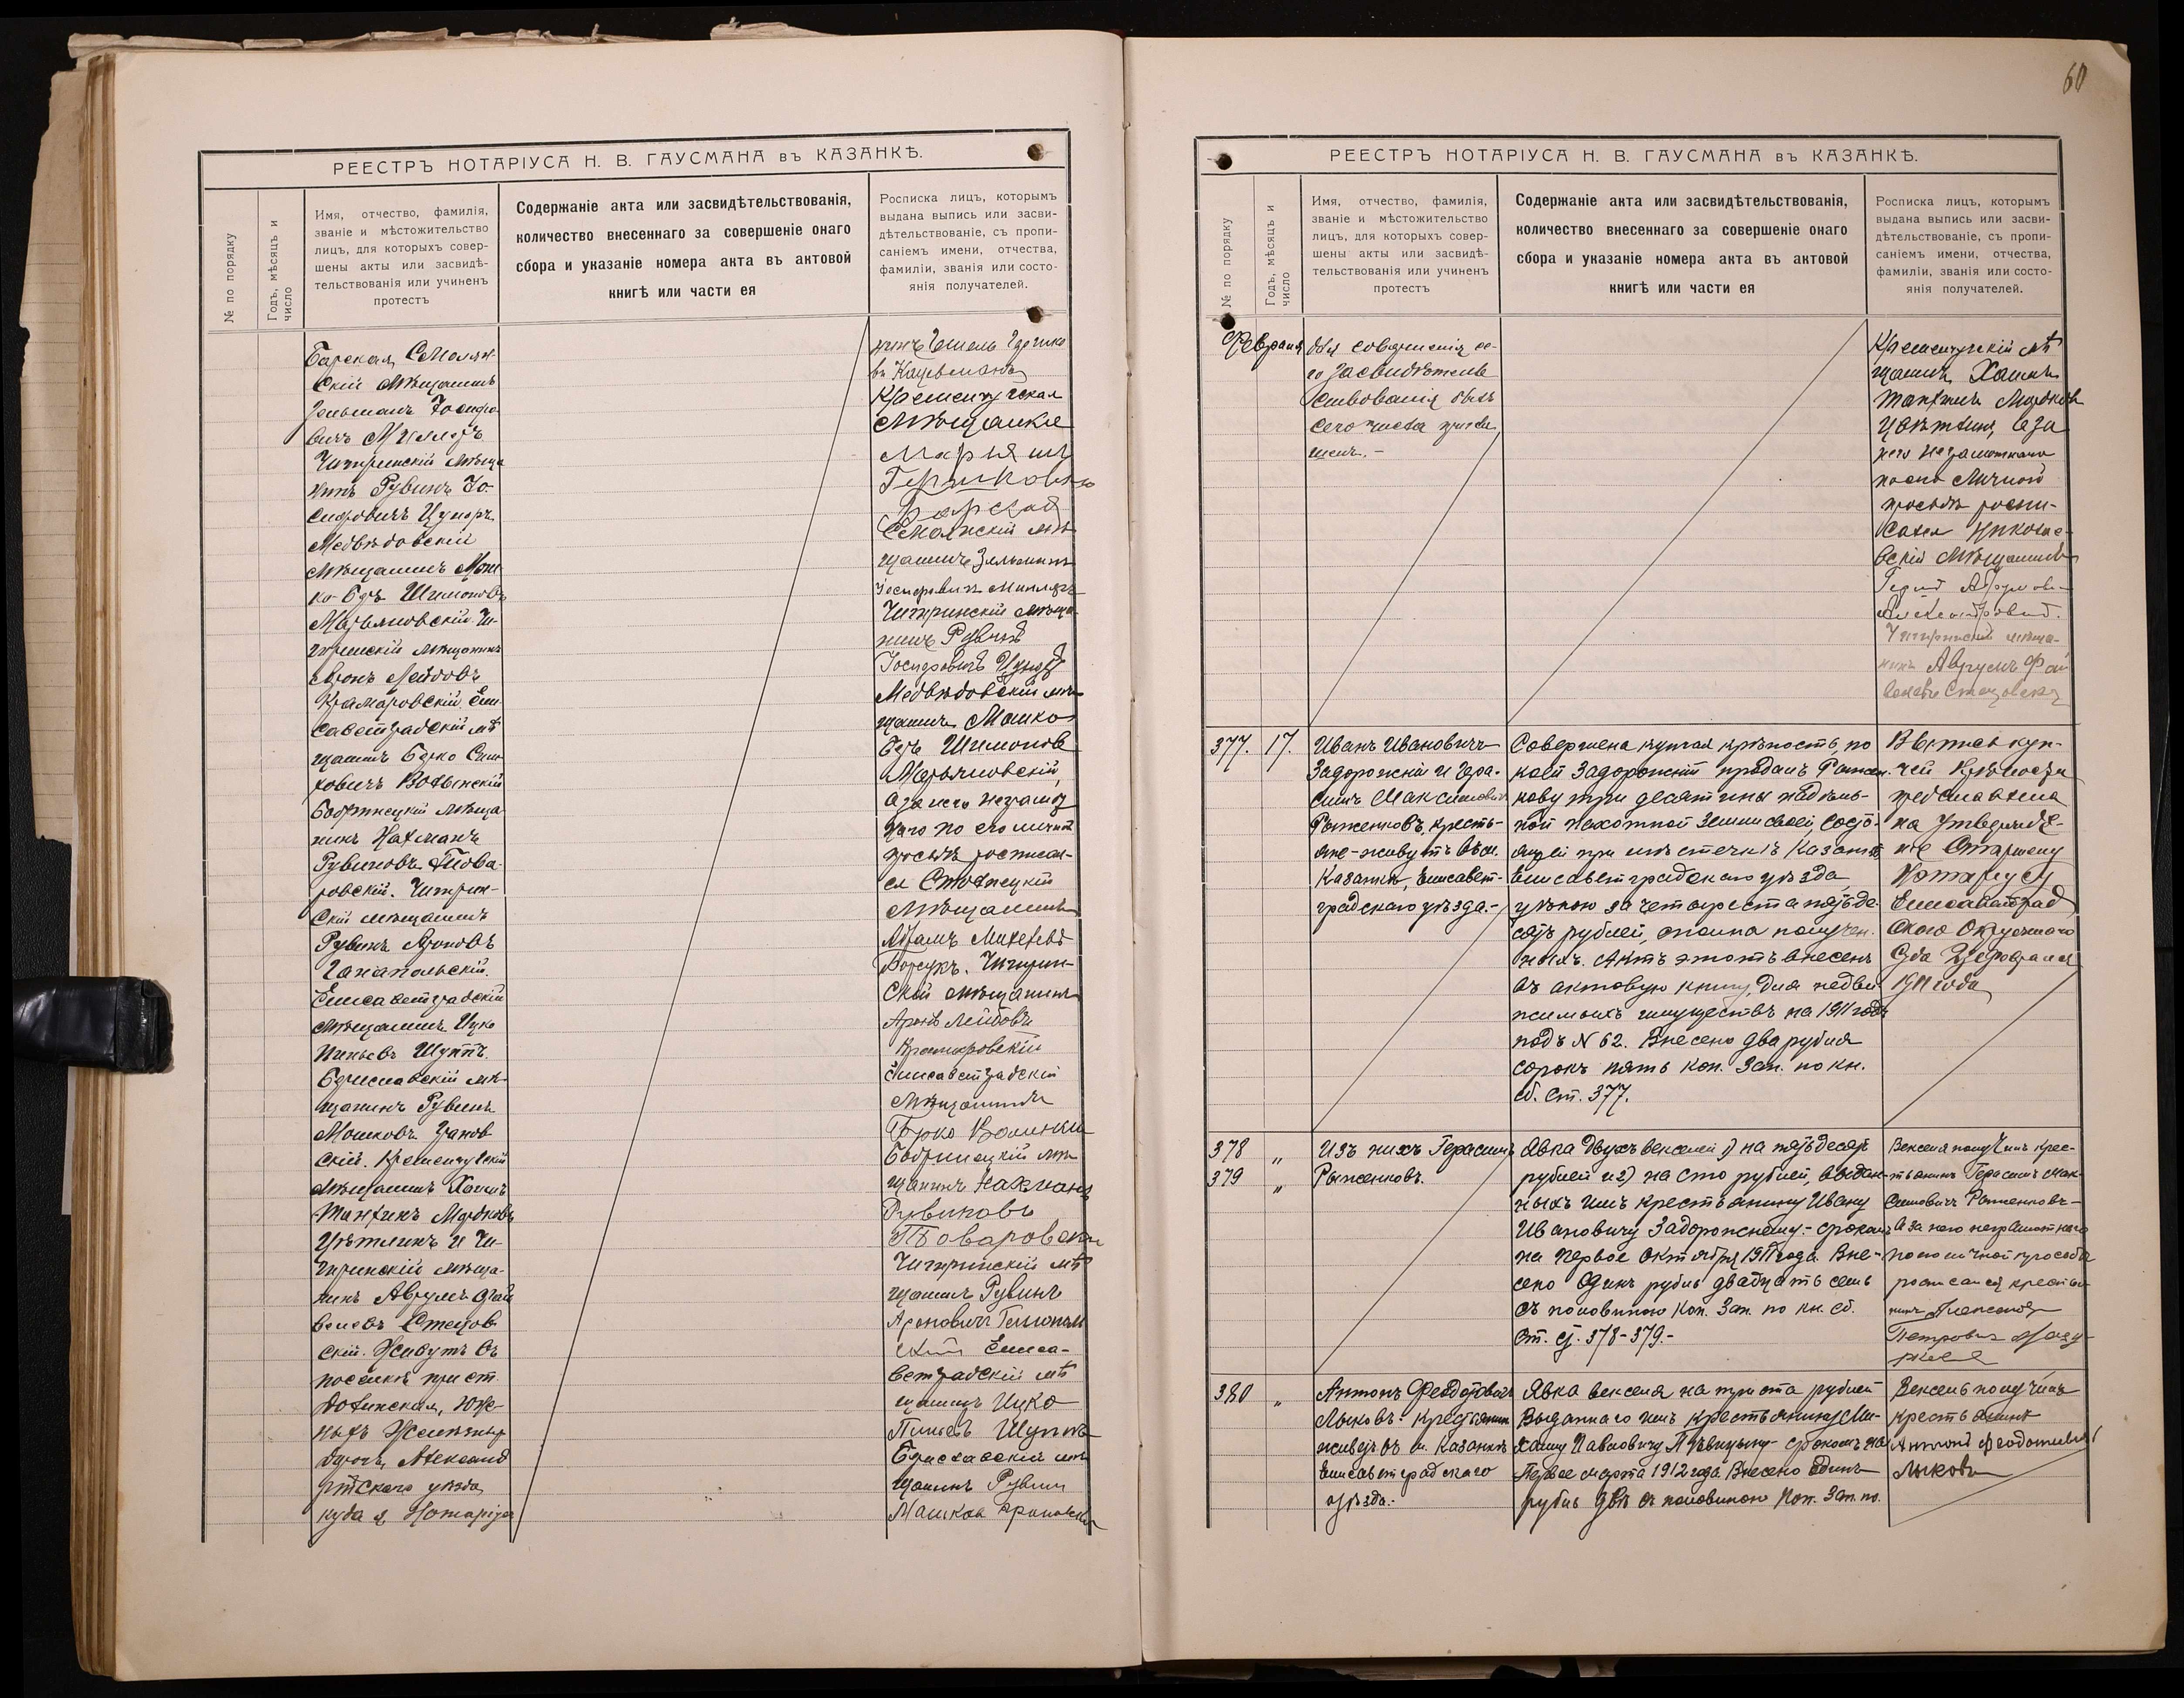 РЕЕСТРЪ НОТАРІУСА Н. В. ГАУСМАНА въ КАЗАНКѢ.
№ по порядку
Годъ, мѣсяцъ и
число
Имя, отчество, фамилія,
званіе и мѣстожительство
лицъ, для которыхъ совер-
шены акты или засвидѣ-
тельствованія или учиненъ
протестъ
Содержаніе акта или засвидѣтельствованія,
количество внесеннаго за совершеніе онаго
сбора и указаніе номера акта въ актовой
книгѣ или части ея
Росписка лицъ, которымъ
выдана выпись или засви-
дѣтельствованіе, съ пропи-
саніемъ имени, отчества,
фамиліи, званія или состо-
янія получателей.
Барская, Смолян-
скій мѣщанинъ
Зельманъ Іосифо-
вичъ Миллеръ
Чигиринскій мѣща
нинъ Рувинъ Іо-
сифовичъ
Медвѣдовскій
мѣщанинъ Мош-
ко-Беръ Шимоновъ
Марьяновскій. Чи-
гиринскій мѣщанинъ
Аронъ Лейбовъ
Крамаровскій, Ели
саветградскій мѣ
щанинъ Берко
ковичъ Волынскій
Бобринецкій мѣща
нинъ Нахманъ
Рувиновъ Товa-
ровскій. Чигирин-
скій мѣщанинъ
Рувинъ Ароновъ
Елисаветградскій
мѣщанинъ Ицко
Пиньевъ Шупикъ
Бериславскій мѣ-
щанинъ Рувинъ
Мошковъ
скій. Кременчугскій
мѣщанинъ Хаимъ
Танхинъ Мордковъ
Цвѣткинъ и Чи-
гиринскій мѣща-
нинъ Аврумъ Фай
велевъ Стецов
скій. Живутъ въ
поселкѣ при ст.
Долинская, Юж-
ныхъ Желѣзныхъ
дорогъ, Александ
рійскаго уѣзда,
куда я Нотаріусъ
Кременчугская
мѣщанка
Марьямъ
Гершковна
Барская
Смолянскій мѣ
щанинъ Зельманъ
Іосифовичъ Миллеръ
Чигиринскій мѣща-
нинъ Рувинъ
Іосифовичъ
Медвѣдовскій мѣ
щанинъ Мошко
Беръ Шимоновъ
Марьяновскій,
а за него неграмот
наго по его личной
просьбѣ росписал-
ся
мѣщанинъ
Абрамъ
Борсукъ. Чигирин-
скій мѣщанинъ
Аронъ Лейбовъ
Крамаровскій
Елисаветградскій
мѣщанинъ
Берко Волынскій
Бобринецкій мѣ
щанинъ Нахманъ
Рувиновъ
Товаровскій
Чигиринскій мѣ
щанинъ Рувинъ
Ароновичъ
скій Елиса-
ветградскій мѣ
щанинъ Ицко
Пиньевъ Шупикъ
Бериславскій мѣ
щанинъ Рувинъ
Мошковъ
60
РЕЕСТРЪ НОТАРІУСА Н. В. ГАУСМАНА въ КАЗАНКѢ.
№ по порядку
Годъ, мѣсяцъ и
число
Имя, отчество, фамилія,
званіе и мѣстожительство
лицъ, для которыхъ совер-
шены акты или засвидѣ-
тельствованія или учиненъ
протестъ
Содержаніе акта или засвидѣтельствованія,
количество внесеннаго за совершеніе онаго
сбора и указаніе номера акта въ актовой
книгѣ или части ея
Росписка лицъ, которымъ
выдана выпись или засви-
дѣтельствованіе, съ пропи-
саніемъ имени, отчества,
фамиліи, званія или состо-
янія получателей.
Февраля
для совершенія се-
го засвидѣтель
ствованія былъ
сего числа пригла
шенъ.-
Кременчугскій мѣ
щанинъ Хаимъ
Танхинъ Мордковъ
Цвѣткинъ, а за
него неграмотнаго
по его личной
просьбѣ роспи-
сался Николае-
вскій мѣщанинъ
Чигиринскій мѣща-
нинъ Аврумъ Фай
велевъ Стецовскій
377. 17.
Иванъ Ивановичъ
Задорожній и Гера-
симъ Максимовичъ
Рыженковъ, кресть-
яне-живутъ въ м.
Казанкѣ, Елисавет-
градскаго уѣзда.-
Совершена купчая крѣпость, по
коей Задорожній продалъ Рыжен-
кову три десятины надѣль-
ной пахотной земли своей, состо-
ящей при мѣстечкѣ Казанкѣ
Елисаветградскаго уѣзда
цѣною за четыреста пятьде
сятъ рублей, сполна получен-
ныхъ. Актъ этотъ внесенъ
въ актовую книгу для недви
жимыхъ имуществъ на 1911 годъ
подъ N 62. Внесено два рубля
сорокъ пять коп. Зап. по кн.
сб. ст. 377.
Выпись куп-
чей крѣпости
представлена
на утвержде-
ніе Старшему
Нотаріусу
Елисаветград
скаго Окружнаго
Суда Февраля
1911 года
378 „
379 „
Изъ нихъ Герасимъ
Рыженковъ.
Явка двухъ векселей 1) на пятьдесятъ
рублей и 2) на сто рублей, выдан-
ныхъ имъ крестьянину Ивану
Ивановичу Задорожнему-срокомъ
на первое октября 1911 года. Вне-
сено одинъ рубль двадцать семь
съ половиною коп. Зап. по кн. сб.
ст. ст. 378-379.-
Векселя получилъ крес-
тьянинъ Герасимъ Мак-
симовичъ Рыженковъ-
а за него неграмотнаго
по его личной просьбѣ
росписался крестья-
нинъ Александръ
Петровичъ
380 „
Антонъ Феодотовичъ
Лыковъ-крестьянинъ
живетъ въ м. Казанкѣ
Елисаветградскаго
уѣзда.-
Явка векселя на триста рублей
выданнаго имъ крестьянину Ми-
хаилу Павловичу Пѣвицыну-срокомъ на
Первое марта 1912 года. Внесено одинъ
рубль двѣ съ половиною коп. Зап. по.
Вексель получилъ
крестьянинъ
Антонъ Феодотовичъ
Лыковъ